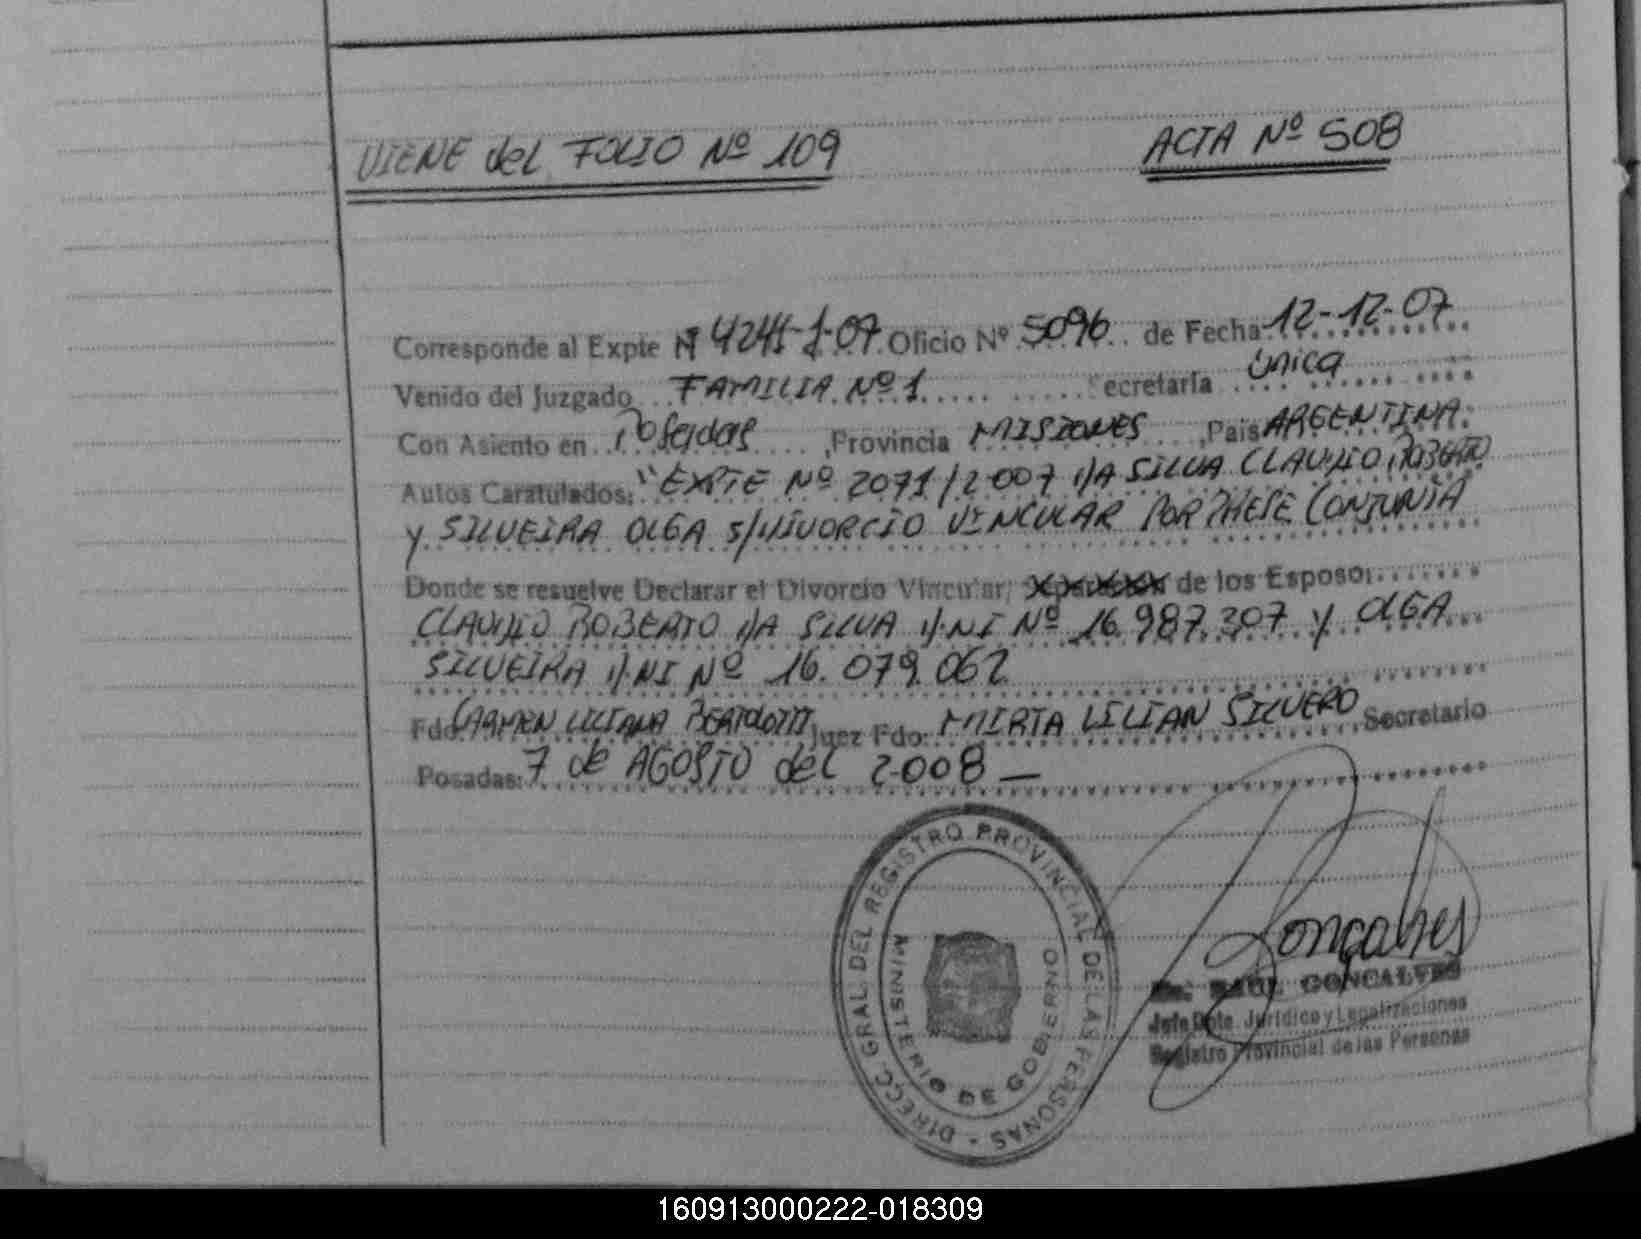 VIENE del FOLIO Nº 109
ACTA Nº 508
Corresponde al Expte Nº 4244-J-07 Oficio Nº 5096 de Fecha 12-12-07
Venido del Juzgado FAMILIA Nº 1 Secretaría única
Con Asiento en Posadas, Provincia MISIONES, País ARGENTINA.
Autos Caratulados: "EXPTE Nº 2071/2007 DA SILVA CLAUDIO ROBERTO
y SILVEIRA OLGA s/DIVORCIO VINCULAR POR PRESE CONJUNTA
Donde se resuelve Declarar el Divorcio Vincular, de los Esposos:
CLAUDIO ROBERTO DA SILVA D.NI Nº 16.987.307 y OLGA
SILVEIRA D.NI Nº 16.079.062
Fdo: CARMEN LILIANA Juez Fdo: MIRTA LILIAN SILVERO, Secretario
Posadas: 7 de AGOSTO del 2008 —
DIRECC. GRAL. DEL REGISTRO PROVINCIAL DE LAS PERSONAS
MINISTERIO DE GOBIERNO
Gonçalves
Dr. RAUL GONCALVES
Jefe Dpto. Jurídico y Legalizaciones
Registro Provincial de las Personas
160913000222-018309